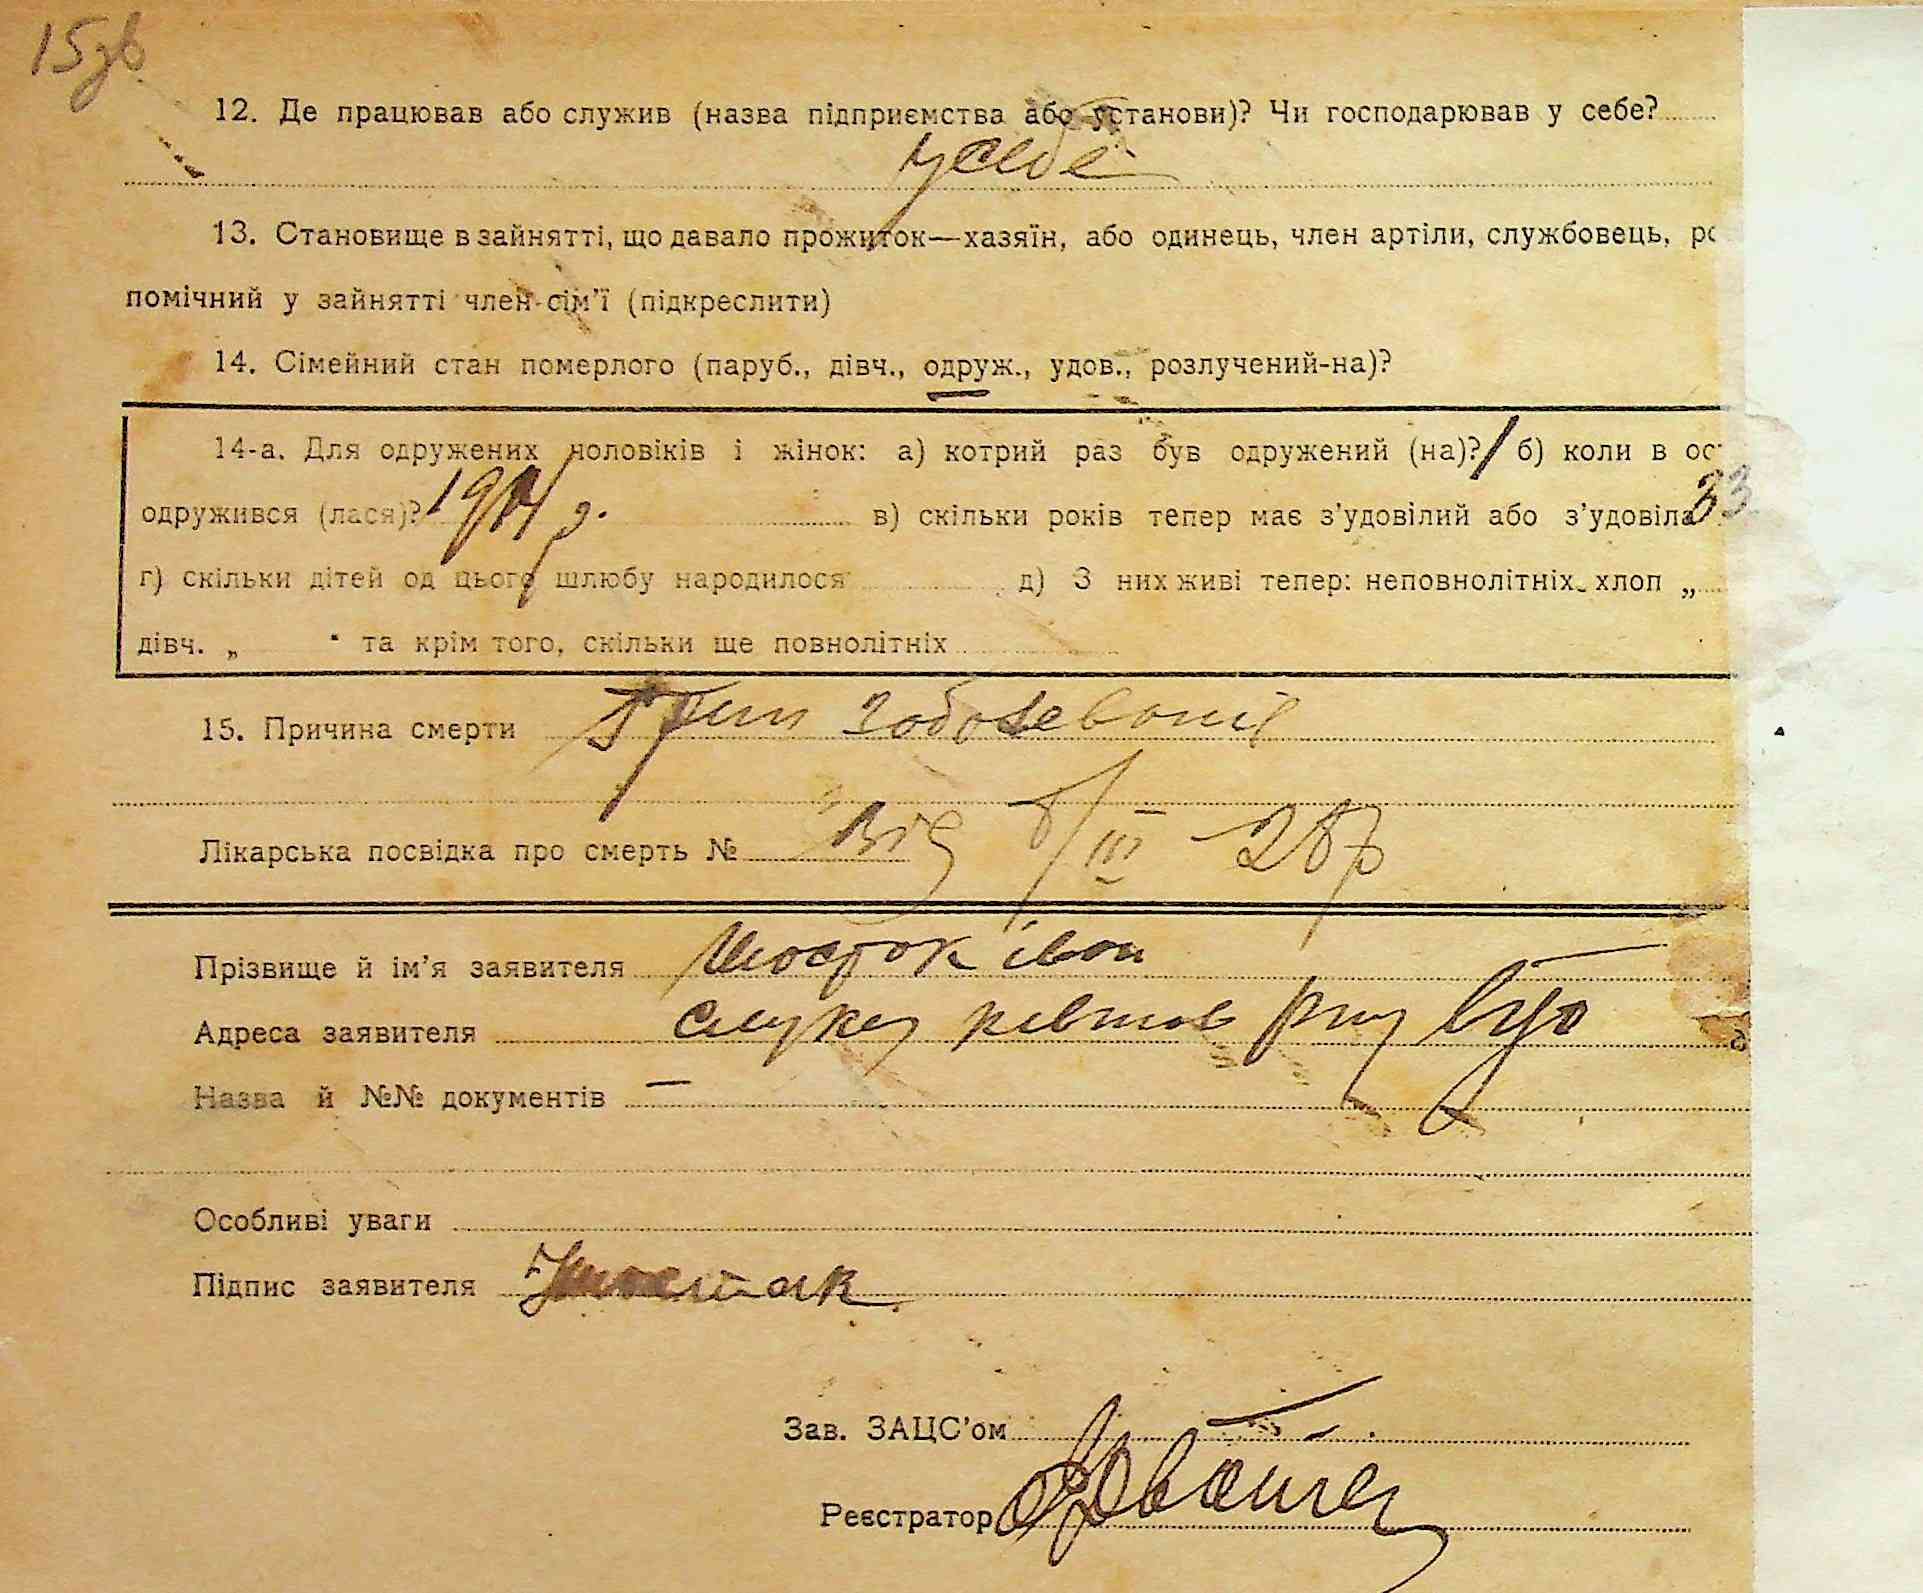 15зв
12. Де працював або служив (назва підприємства або установи)? Чи господарював у себе?
у себе
13. Становище в зайнятті, що давало прожиток—хазяїн, або одинець, член артіли, службовець, ро
помічний у зайнятті член сім'ї (підкреслити)
14. Сімейний стан померлого (паруб., дівч., одруж., удов., розлучений-на)?
14-а. Для одружених чоловіків і жінок: а) котрий раз був одружений (на)? 1 б) коли в ос
одружився (лася)? в) скільки років тепер має з'удовілий або з'удовіла 33
г) скільки дітей од цього шлюбу народилося д) З них живі тепер: неповнолітніх хлоп „
дівч. „ " та крім того, скільки ще повнолітніх
15. Причина смерти
Лікарська посвідка про смерть № Від /III - 28 р
Прізвище й ім'я заявителя Шосток іван
Адреса заявителя
Назва й №№ документів —
Особливі уваги
Підпис заявителя
Зав. ЗАЦС'ом
Реєстратор